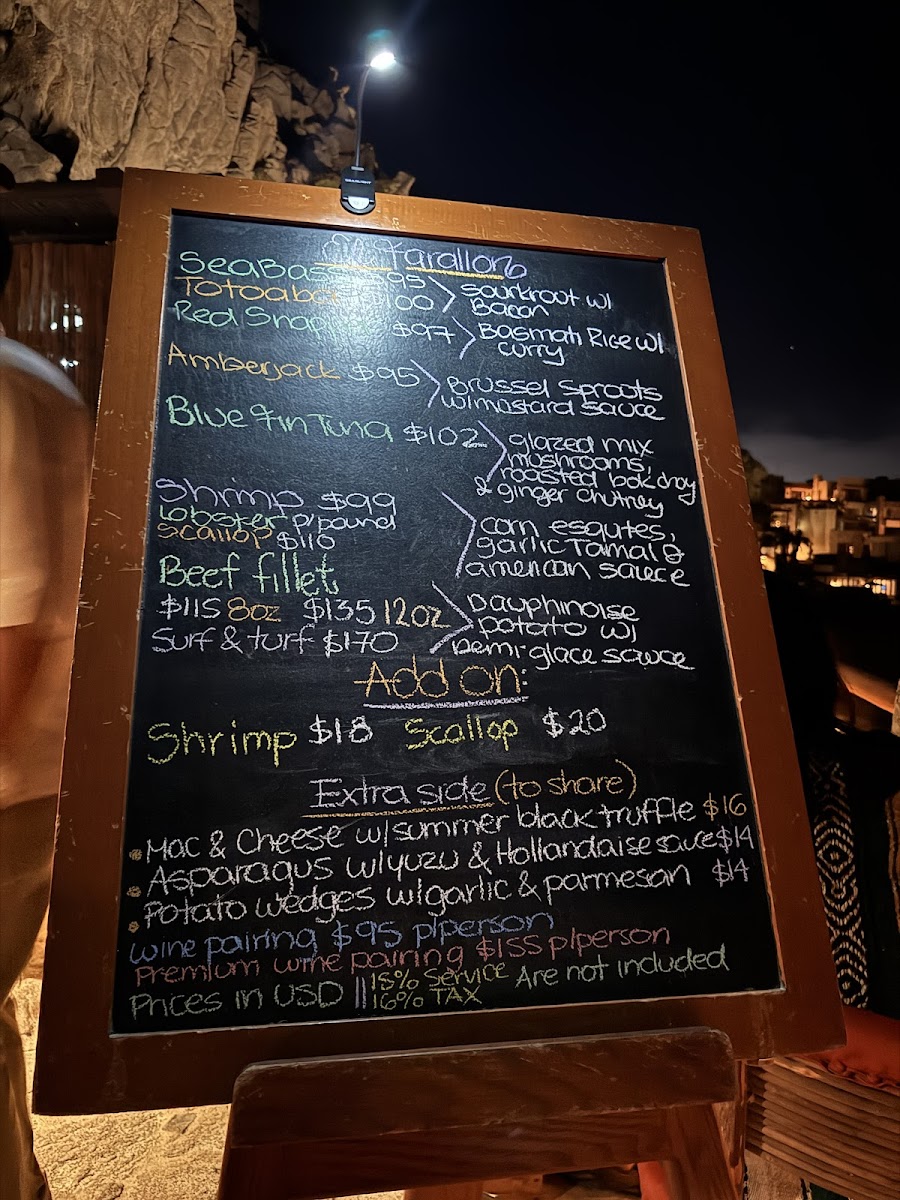 El Farallon
SeaBass $95
Totoaba $100
sourkrout w/
Bacon
Red Snapper $97
Basmati Rice w/
curry
Amberjack $95
Brussel Sprouts
w/mostard sauce
Blue fin Tuna $102
glazed mix
mushrooms,
roasted bok choy
& ginger chutney
Shrimp $99
Lobster p/pound
Scallop $110
corn esquites,
garlic Tamal &
american sauce
Beef fillet
$115 8oz $135 12oz
Surf & turf $170
Dauphinoise
potato w/
Demi-glace sauce
Add on:
Shrimp $18 Scallop $20
Extra side (to share)
Mac & Cheese w/summer black truffle $16
Asparagus w/yuzu & Hollandaise sauce $14
Potato wedges w/garlic & parmesan $14
wine pairing $95 p/person
Premium wine pairing $155 p/person
Prices in USD || 15% Service Are not included
16% TAX